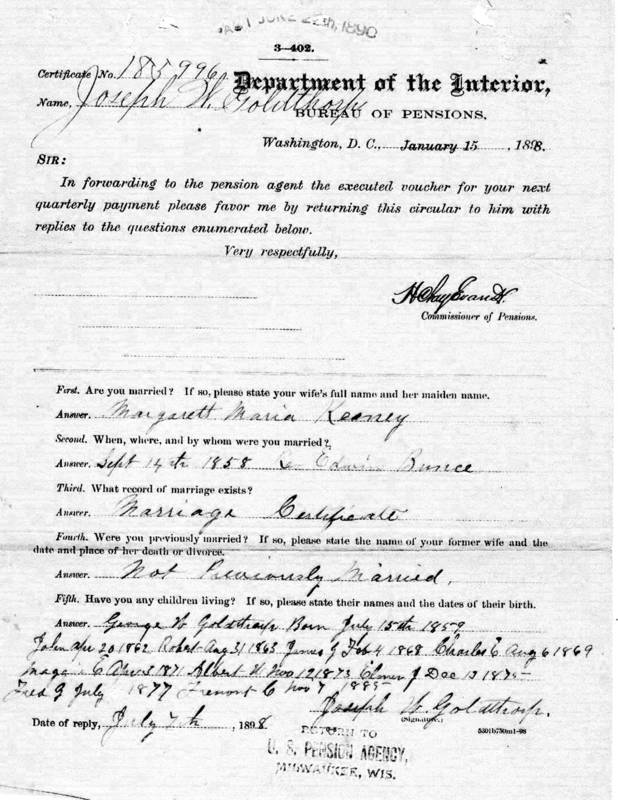 ACT JUNE 27th, 1890
3—402.
Certificate No. 185996
Department of the Interior,
Name, Joseph W. Goldthorp
BUREAU OF PENSIONS,
Washington, D. C., January 15, 1898.
SIR:
In forwarding to the pension agent the executed voucher for your next
quarterly payment please favor me by returning this circular to him with
replies to the questions enumerated below.
Very respectfully,
H Clay Evans
Commissioner of Pensions.
First. Are you married? If so, please state your wife's full name and her maiden name.
Answer. Margarett Maria
Second. When, where, and by whom were you married?
Answer. Sept 14th 1858 Rev Edwin Bunce
Third. What record of marriage exists?
Answer. Marriage Certificate
Fourth. Were you previously married? If so, please state the name of your former wife and the
date and place of her death or divorce.
Answer. Not Previously Married.
Fifth. Have you any children living? If so, please state their names and the dates of their birth.
Answer. George W Goldthorp Born July 15th 1859
John apr 20 1862 Robert Aug 31 1863 James G Feb 4 1868 Charles E Aug 6 1869
Maggie E Apr 5 1871 Albert H Nov 12 1873 Elmer J Dec 13 1875
Fred G July 1877 Fremont C Nov 7 1885
Joseph W. Goldthorp.
(Signature.)
Date of reply, July 7th, 1898
5301b750m1-98
RETURN TO
U. S. PENSION AGENCY,
MILWAUKEE, WIS.